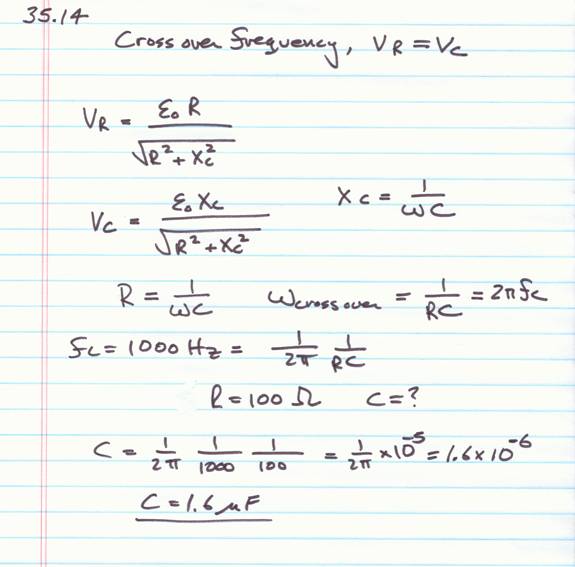 35.14
Cross over frequency, V_R = V_C
V_R = ε₀ R / √(R² + X_C²)
V_C = ε₀ X_C / √(R² + X_C²)    X_C = 1/ωC
R = 1/ωC    ω_crossover = 1/RC = 2π f_C
f_C = 1000 Hz = 1/2π 1/RC
R = 100 Ω    C = ?
C = 1/2π 1/1000 1/100 = 1/2π × 10⁻⁵ = 1.6 × 10⁻⁶
C = 1.6 μF